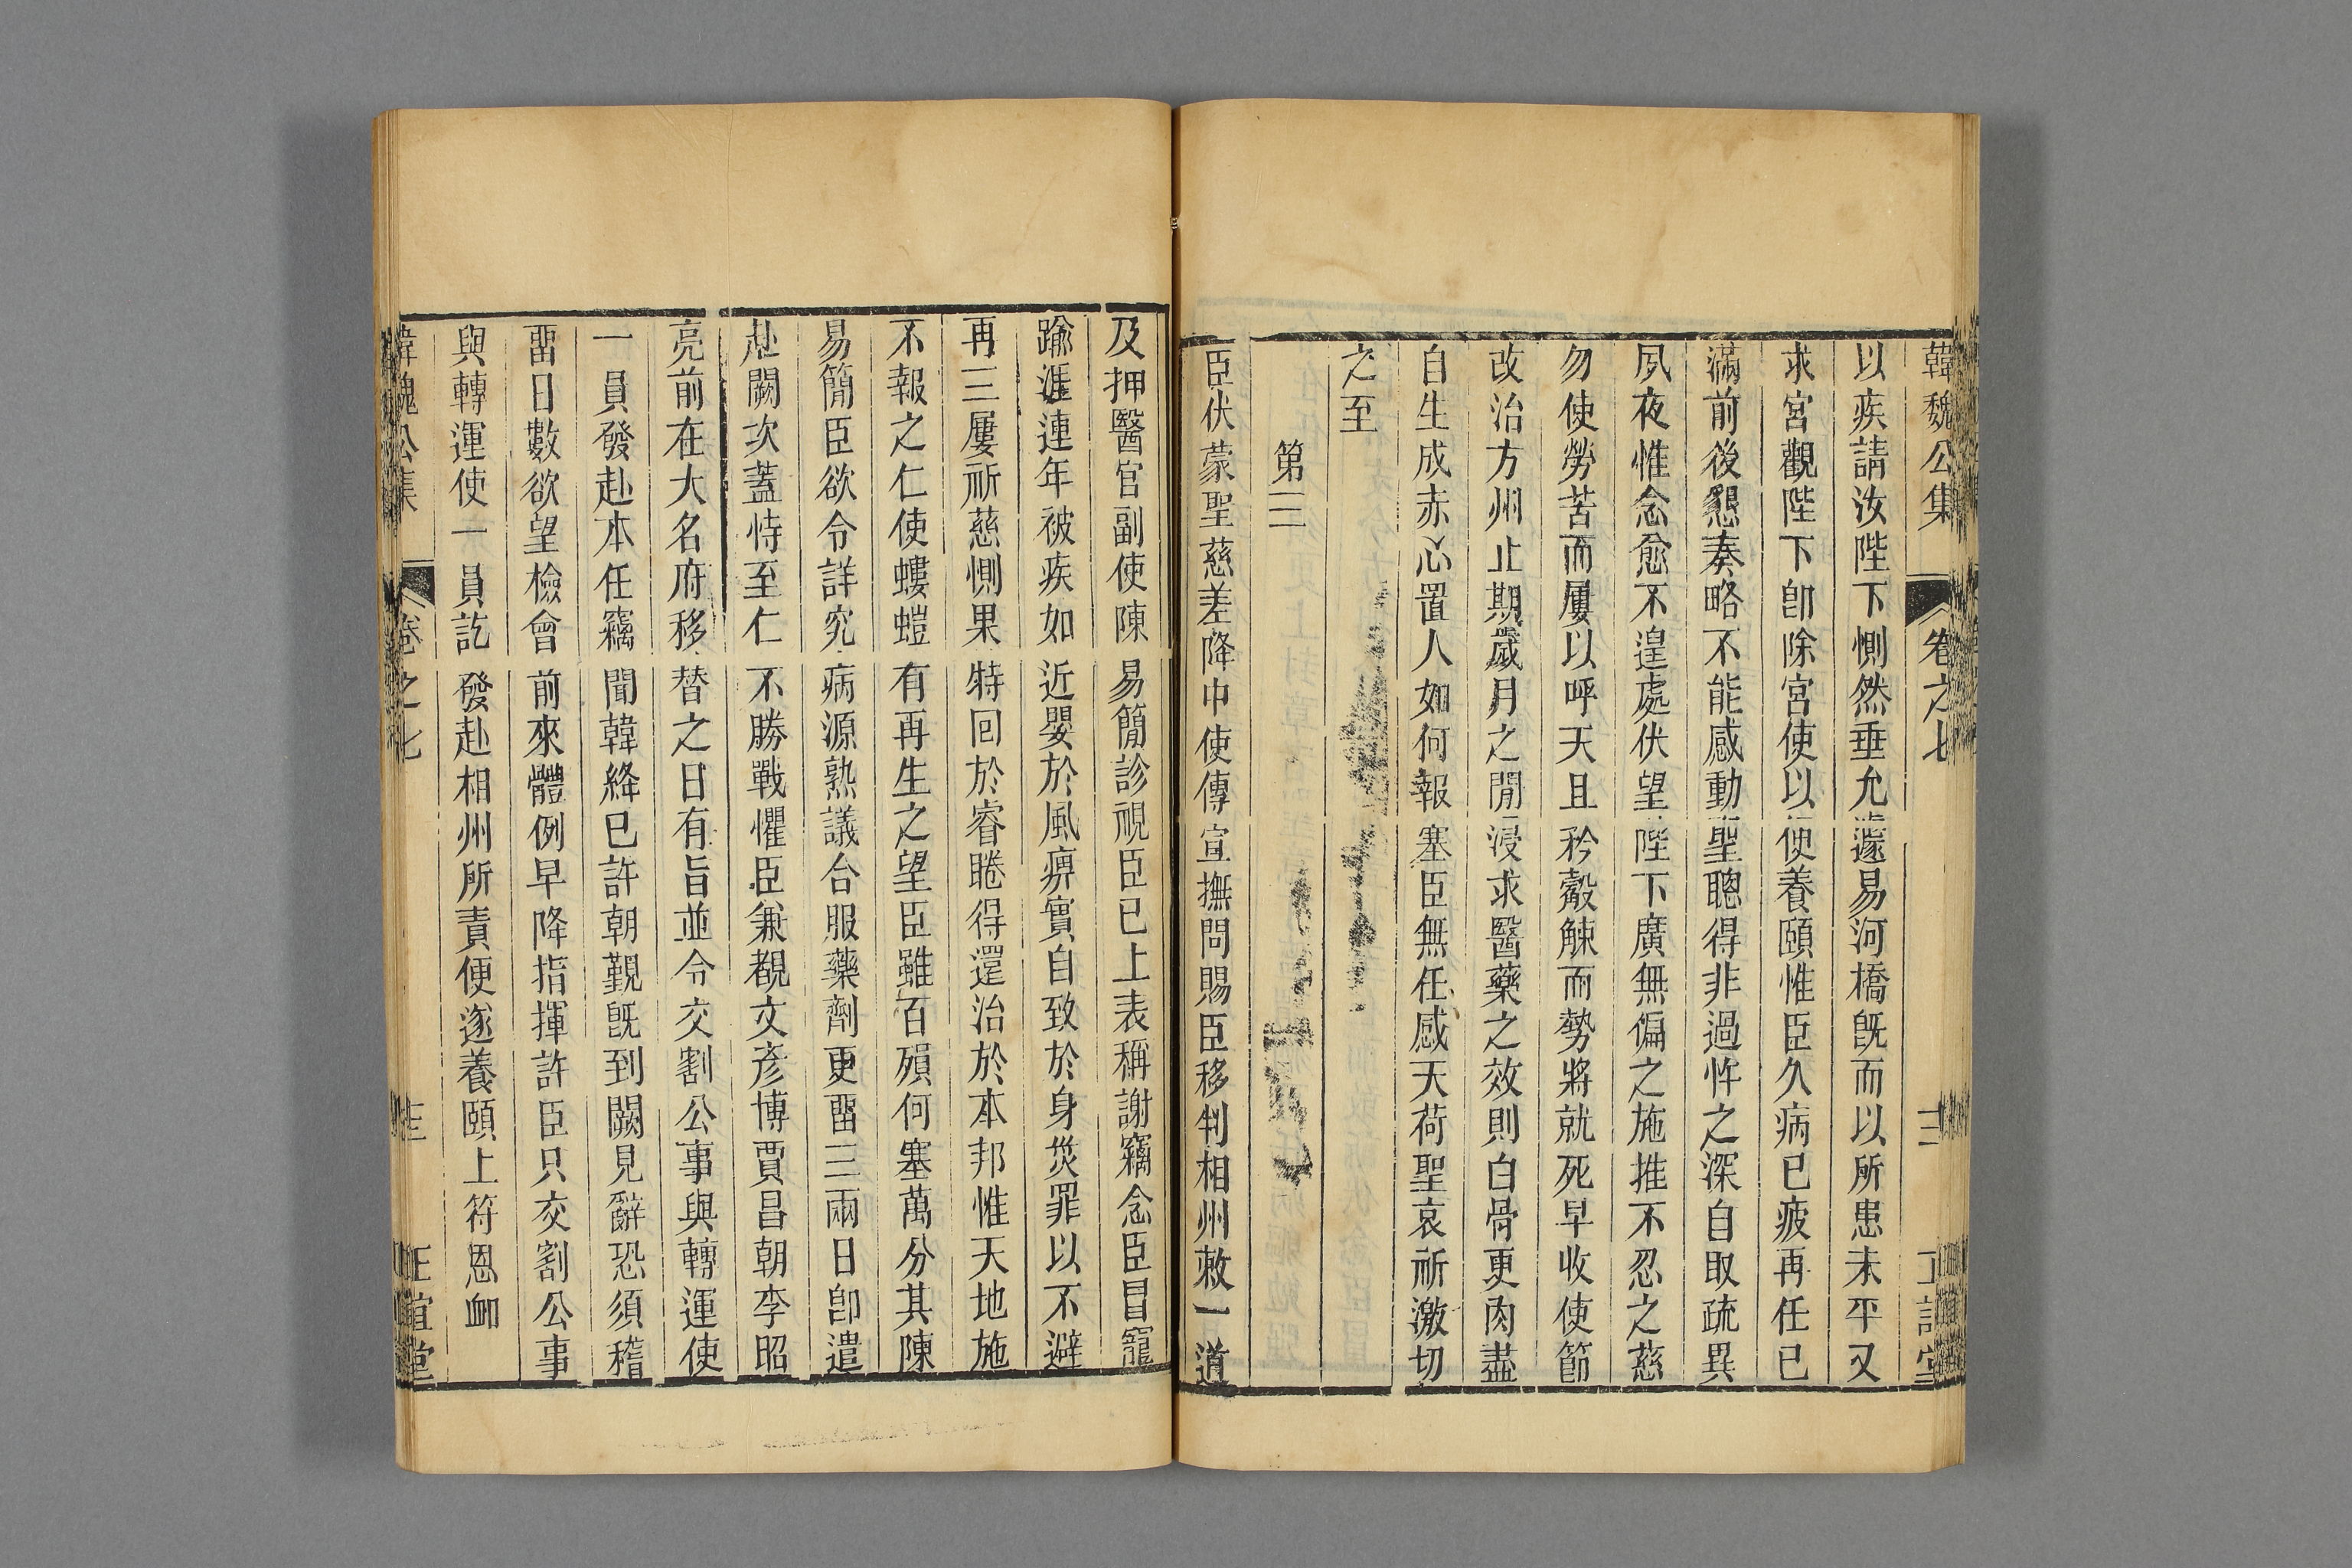 韓魏公集 卷之七 十二
以疾請汝陛下惻然垂允遽易河橋旣而以所患未平又
求宮觀陛下卽除宮使以便養頤惟臣久病已疲再任已
滿前後懇奏略不能感動聖聰得非過忤之深自取疏異
夙夜惟念愈不遑處伏望陛下廣無偏之施推不忍之慈
勿使勞苦而屢以呼天且矜觳觫而勢將就死早收使節
改治方州止期歲月之閒浸求醫藥之效則白骨更肉盡
自生成赤心置人如何報塞臣無任感天荷聖哀祈激切
之至
第三
臣伏蒙聖慈差降中使傳宣撫問賜臣移判相州敕一道
及押醫官副使陳易簡診視臣已上表稱謝竊念臣冒寵
踰涯連年被疾如近嬰於風痹實自致於身災罪以不避
再三屢祈慈惻果特回於睿睠得還治於本邦惟天地施
不報之仁使螻螘有再生之望臣雖百殞何塞萬分其陳
易簡臣欲令詳究病源熟議合服藥劑更畱三兩日卽遣
赴闕次蓋恃至仁不勝戰懼臣兼覩文彥博賈昌朝李昭
亮前在大名府移替之日有旨並令交割公事與轉運使
一員發赴本任竊聞韓絳已許朝覲旣到闕見辭恐須稽
畱日數欲望檢會前來體例早降指揮許臣只交割公事
與轉運使一員訖發赴相州所責便遂養頤上符恩卹
韓魏公集 卷之七 正誼堂